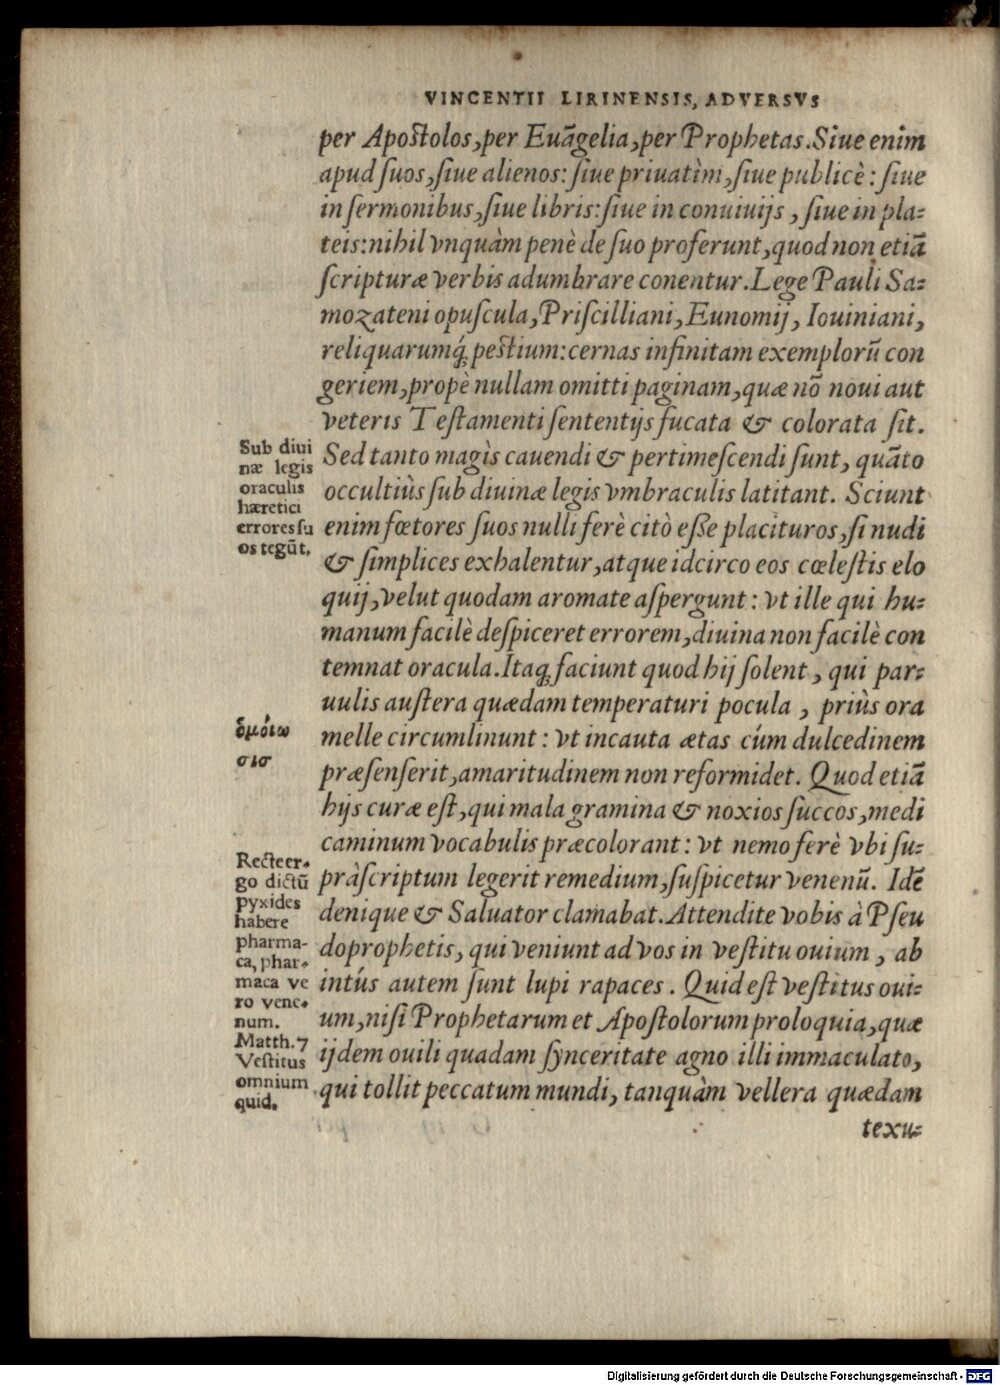 VINCENTII LIRINENSIS, ADVERSVS
per Apostolos, per Euãgelia, per Prophetas. Siue enim
apud ſuos, ſiue alienos: ſiue priuatìm, ſiue publicè: ſiue
in ſermonibus, ſiue libris: ſiue in conuiuijs, ſiue in pla-
teis: nihil vnquàm penè de ſuo proferunt, quod non etiã
ſcripturæ verbis adumbrare conentur. Lege Pauli Sa-
mozateni opuſcula, Priſcilliani, Eunomij, Iouiniani,
reliquarumq́; pestium: cernas infinitam exemplorũ con
geriem, propè nullam omitti paginam, quæ nõ noui aut
veteris Teſtamenti ſententijs fucata & colorata ſit.
Sed tanto magìs cauendi & pertimeſcendi ſunt, quãto
occultiùs ſub diuinæ legis vmbraculis latitant. Sciunt
enim fœtores ſuos nulli ferè citò eſſe placituros, ſi nudi
& ſimplices exhalentur, atque idcirco eos cœleſtis elo
quij, velut quodam aromate aſpergunt: vt ille qui hu-
manum facilè deſpiceret errorem, diuina non facilè con
temnat oracula. Itaq; faciunt quod hij ſolent, qui par-
uulis auſtera quædam temperaturi pocula, priùs ora
melle circumlinunt: vt incauta ætas cúm dulcedinem
præſenſerit, amaritudinem non reformidet. Quod etiã
hijs curæ eſt, qui mala gramina & noxios ſuccos, medi
caminum vocabulis præcolorant: vt nemo ferè vbi ſu-
pràſcriptum legerit remedium, ſuſpicetur venenũ. Idẽ
denique & Saluator clamabat. Attendite vobis à Pſeu
doprophetis, qui veniunt ad vos in veſtitu ouium, ab
intús autem ſunt lupi rapaces. Quid eſt veſtitus oui-
um, niſi Prophetarum et Apoſtolorum proloquia, quæ
ijdem ouili quadam ſynceritate agno illi immaculato,
qui tollit peccatum mundi, tanquàm vellera quædam
texu-
Sub diui
næ legis
oraculis
hæretici
errores ſu
os tegũt.
ὁμόιω
σισ
Recte er-
go dictũ
pyxides
habere
pharma-
ca, phar-
maca ve
ro vene-
num.
Matth. 7
Veſtitus
omnium
quid.
Digitalisierung gefördert durch die Deutsche Forschungsgemeinschaft - DFG